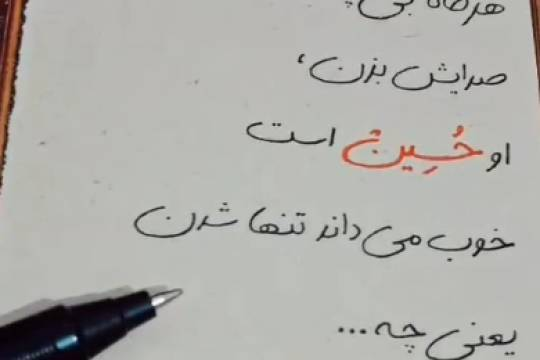 صدایش بزن،
او حُسِین است
خوب می داند تنها شدن
یعنی چه...